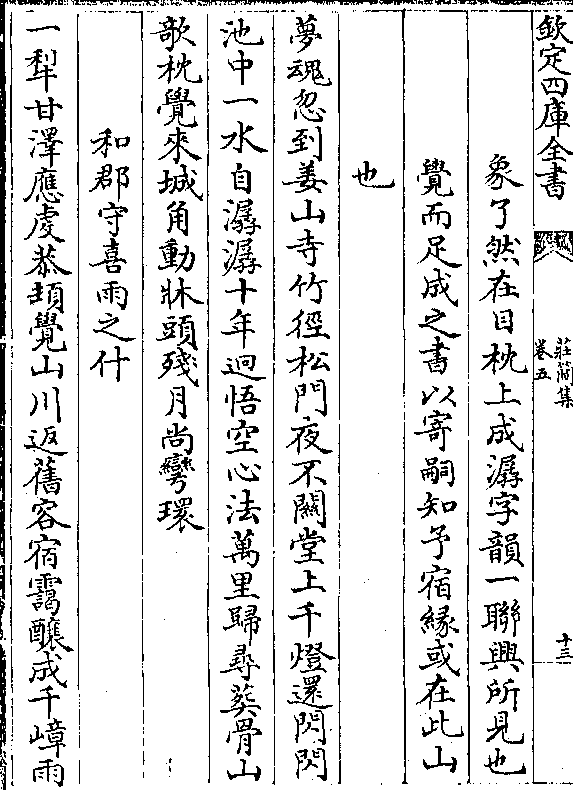 欽定四庫全書
莊簡集
卷五
十三
象了然在目枕上成潺字韻一聯興所見也
覺而足成之書以寄嗣知予宿緣或在此山
也
夢魂忽到姜山寺竹徑松門夜不關堂上千燈還閃閃
池中一水自潺潺十年迥悟空心法萬里歸尋葬骨山
欹枕覺來城角動牀頭殘月尚彎環
和郡守喜雨之什
一犁甘澤應虔恭頓覺山川返舊容宿靄釀成千嶂雨